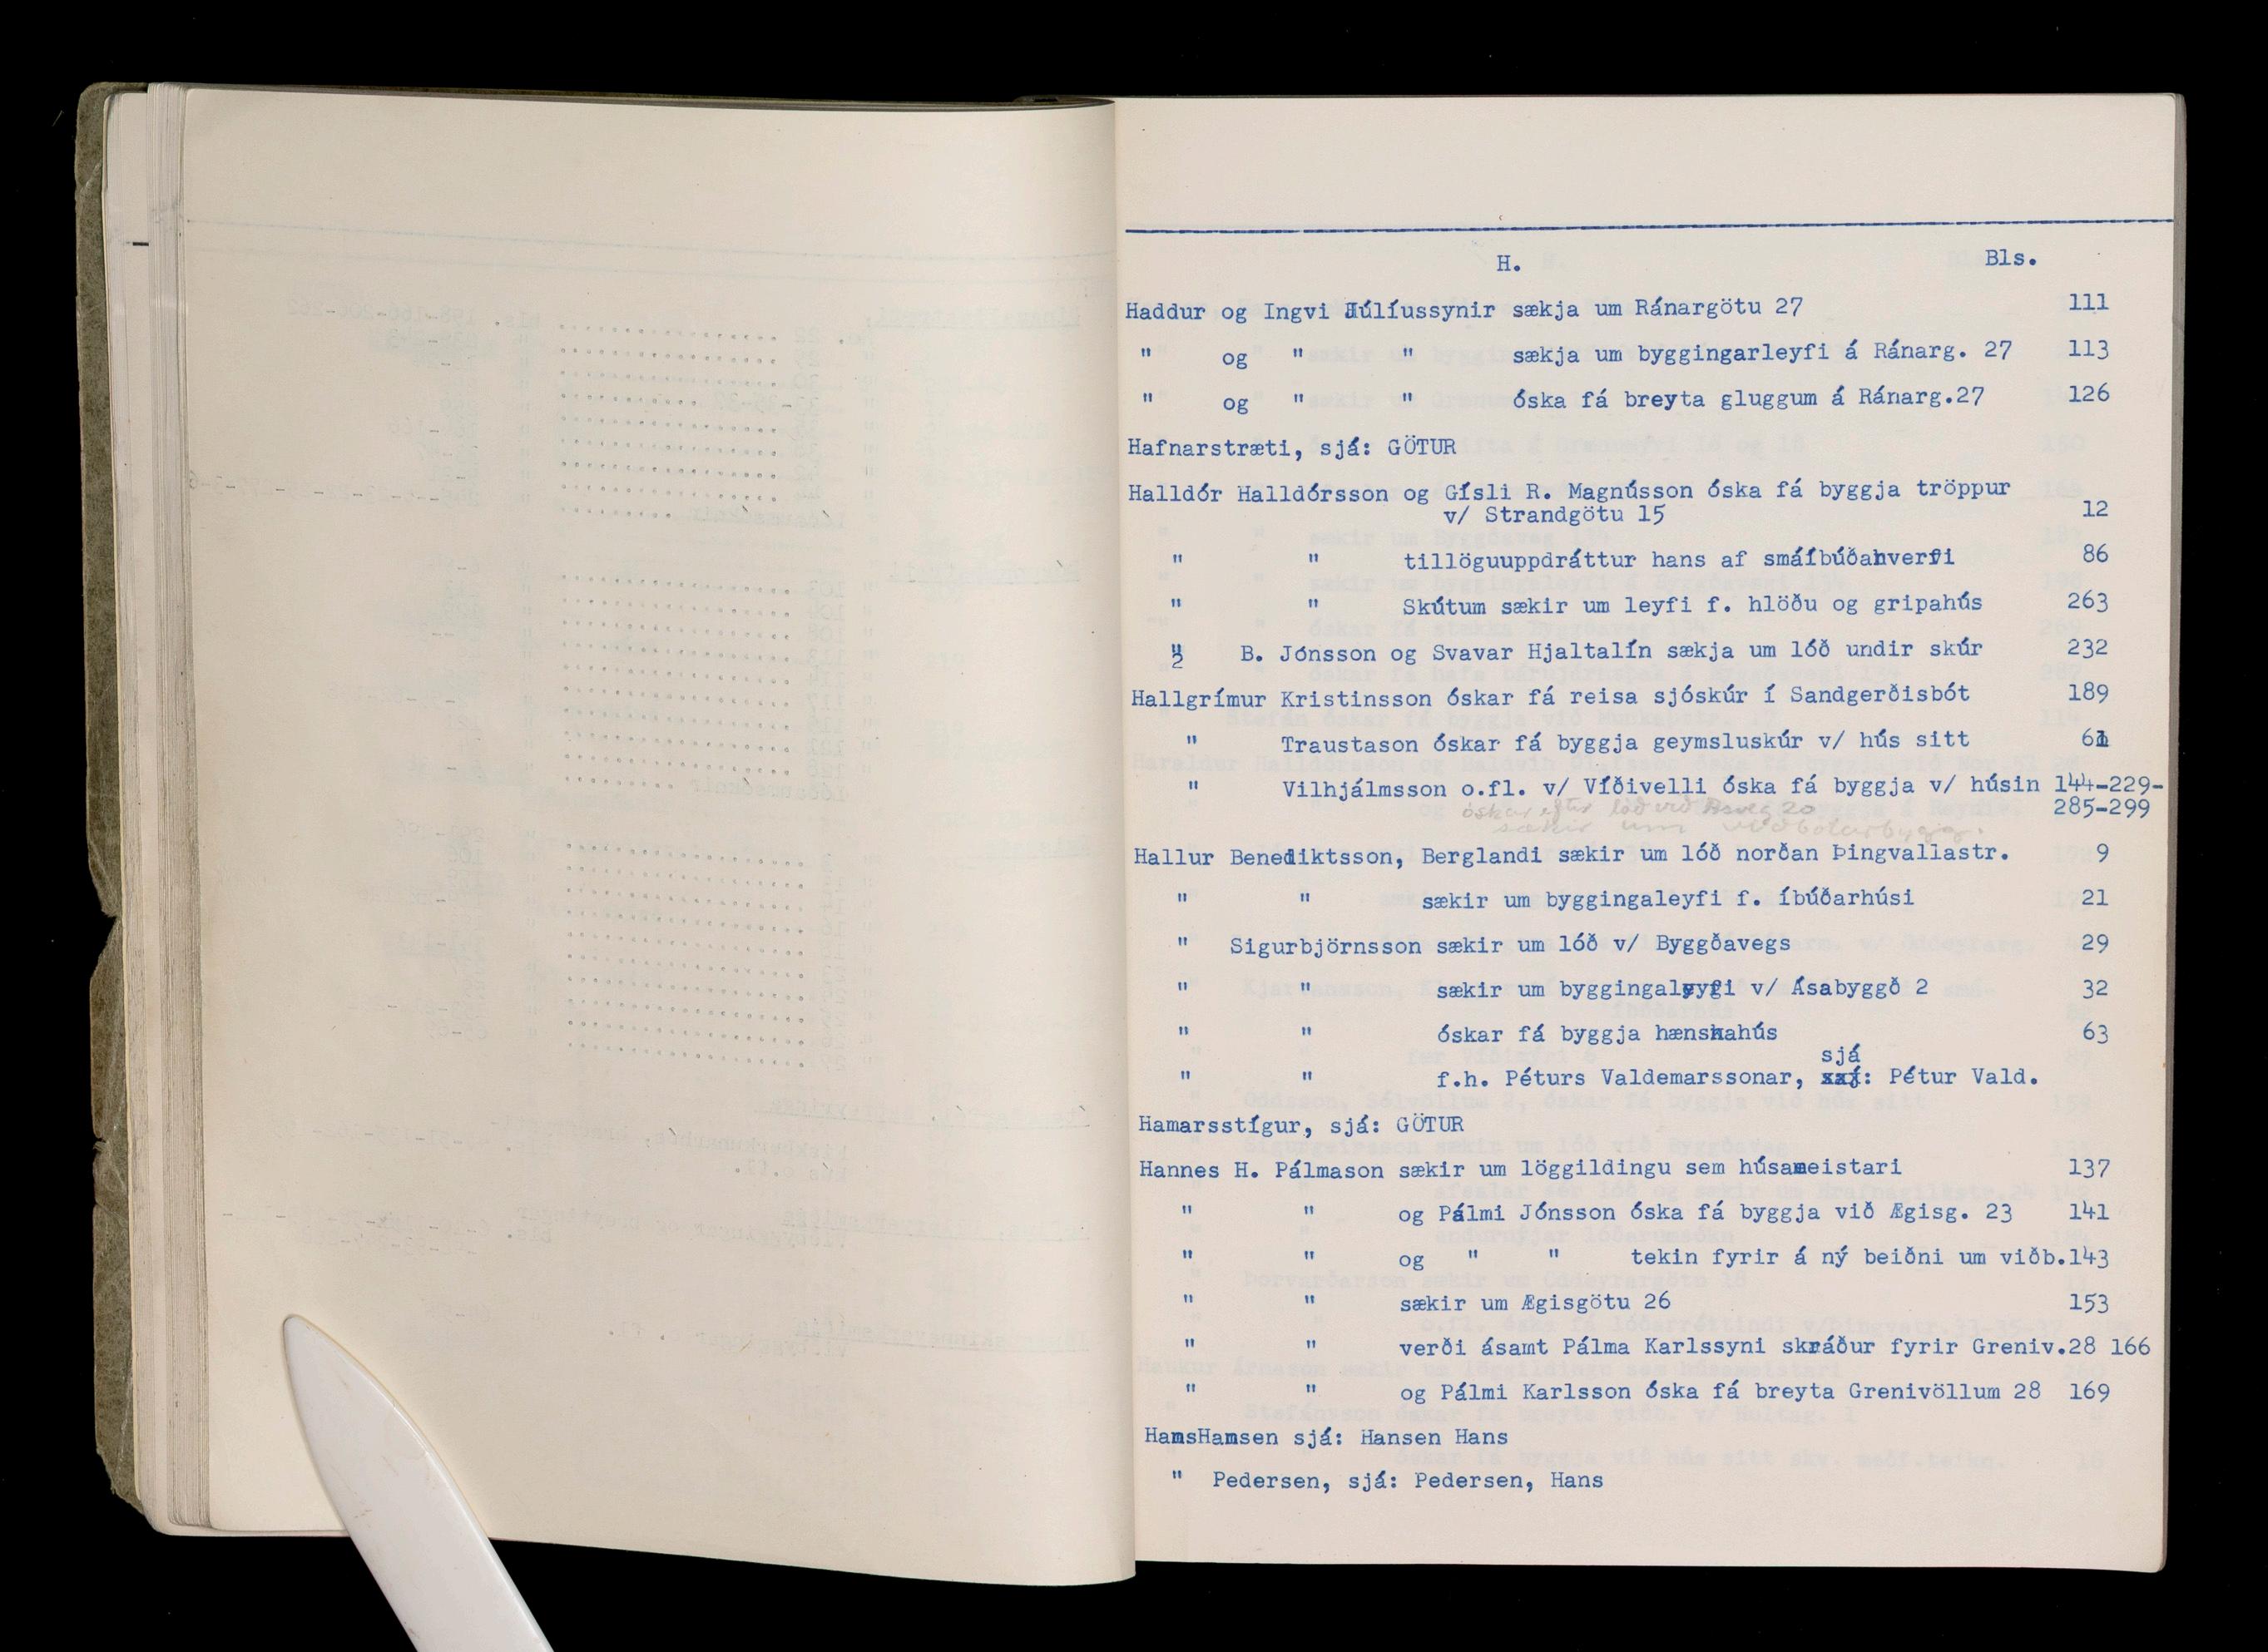 H. Bls.
Haddur og Ingvi Júlíussynir sækja um Ránargötu 27 111
" og " " sækja um byggingarleyfi á Ránarg. 27 113
" og " " óska fá breyta gluggum á Ránarg.27 126
Hafnarstræti, sjá: GÖTUR
Halldór Halldórsson og Gísli R. Magnússon óska fá byggja tröppur
v/ Strandgötu 15 12
" " tillöguuppdráttur hans af smáíbúðahverfi 86
" " Skútum sækir um leyfi f. hlöðu og gripahús 263
" B. Jónsson og Svavar Hjaltalín sækja um lóð undir skúr 232
Hallgrímur Kristinsson óskar fá reisa sjóskúr í Sandgerðisbót 189
" Traustason óskar fá byggja geymsluskúr v/ hús sitt 61
" Vilhjálmsson o.fl. v/ Víðivelli óska fá byggja v/ húsin 144-229-
285-299
óskar eftir lóð við Ásveg 20
sækir um viðbótarbygg.
Hallur Benediktsson, Berglandi sækir um lóð norðan Þingvallastr. 9
" " sækir um byggingaleyfi f. íbúðarhúsi 21
" Sigurbjörnsson sækir um lóð v/ Byggðavegs 29
" " sækir um byggingaleyfi v/ Ásabyggð 2 32
" " óskar fá byggja hænsnahús 63
sjá
" " f.h. Péturs Valdemarssonar, xxj: Pétur Vald.
Hamarsstígur, sjá: GÖTUR
Hannes H. Pálmason sækir um löggildingu sem húsameistari 137
" " og Pálmi Jónsson óska fá byggja við Ægisg. 23 141
" " og " " tekin fyrir á ný beiðni um viðb.143
" " sækir um Ægisgötu 26 153
" " verði ásamt Pálma Karlssyni skráður fyrir Greniv.28 166
" " og Pálmi Karlsson óska fá breyta Grenivöllum 28 169
HansHansen sjá: Hansen Hans
" Pedersen, sjá: Pedersen, Hans